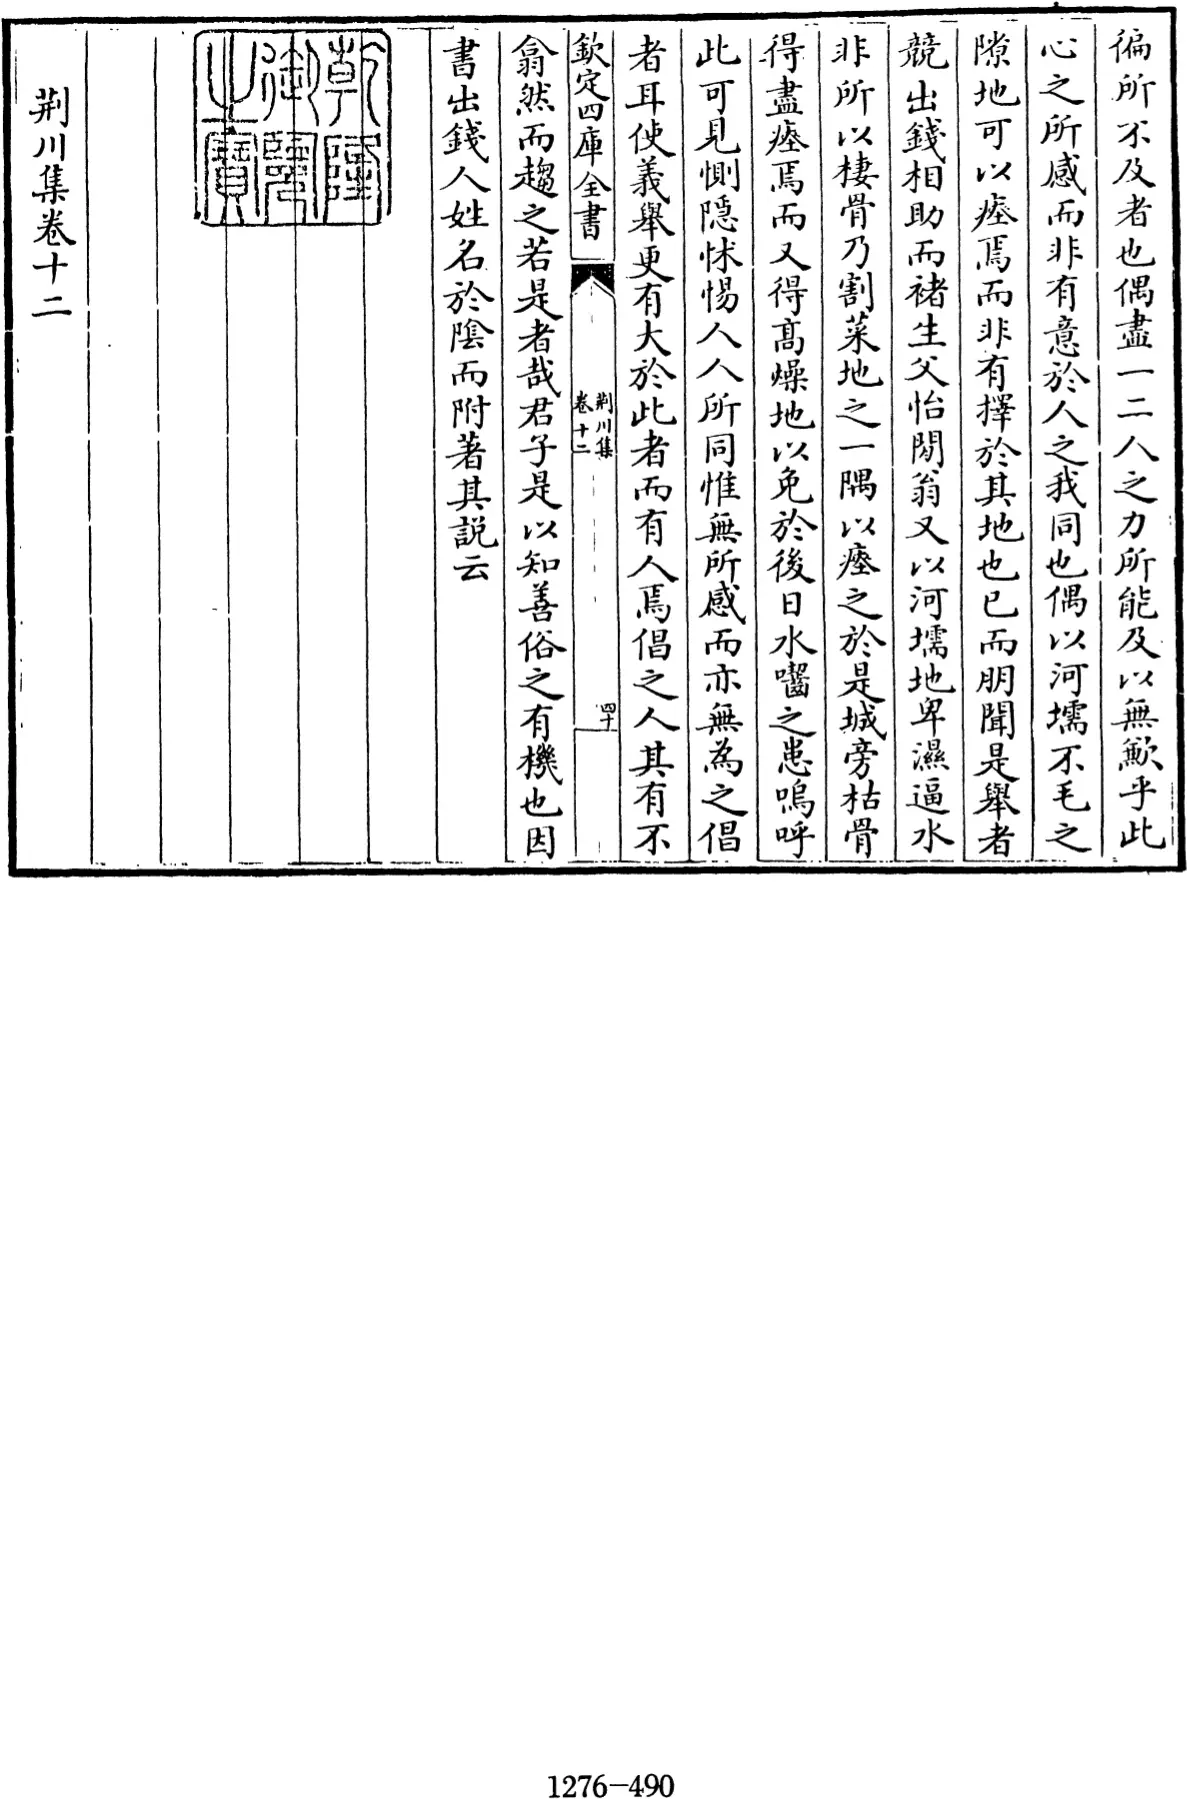 徧所不及者也偶盡一二人之力所能及以無歉乎此
心之所感而非有意於人之我同也偶以河壖不毛之
隙地可以瘞焉而非有擇於其地也已而朋聞是舉者
競出錢相助而褚生父怡閒翁又以河壖地卑濕逼水
非所以棲骨乃割菜地之一隅以瘞之於是城旁枯骨
得盡瘞焉而又得髙燥地以免於後日水囓之患嗚呼
此可見惻隠怵惕人人所同惟無所感而亦無為之倡
者耳使義舉更有大於此者而有人焉倡之人其有不
欽定四庫全書
荆川集
卷十二
四十
翕然而趨之若是者哉君子是以知善俗之有機也因
書出錢人姓名於隂而附著其説云
乾隆
御覽
之寶
荆川集卷十二
1276-490